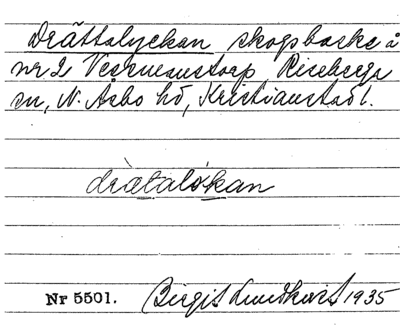 Drättalyckan skogsbacke å
nr 2 Vesmanstorp Riseberga
sn, N. Asbo hd, Kristianstad l.
drætalókan
Nr 5501. Birgit Lundkvist 1935